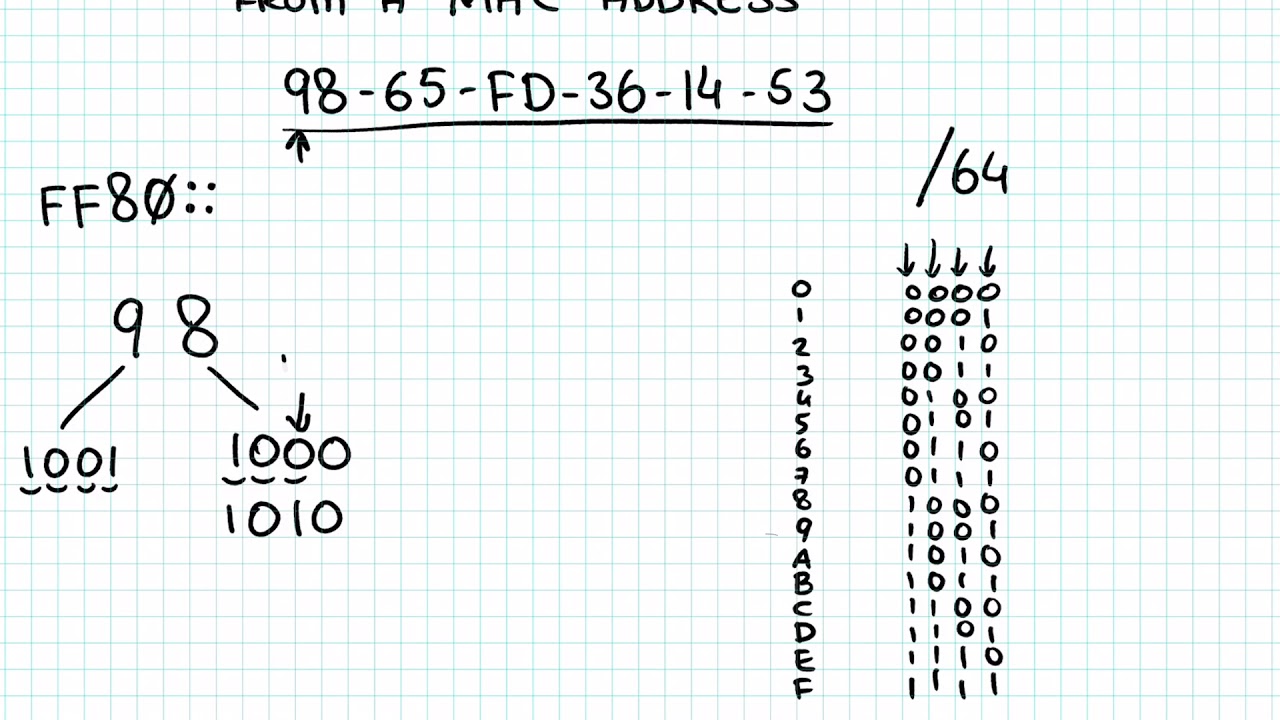 FROM A MAC ADDRESS
98-65-FD-36-14-53
/64
FF80::
98
1001 1000
1010
0 0000
1 0001
2 0010
3 0011
4 0100
5 0101
6 0110
7 0111
8 1000
9 1001
A 1010
B 1011
C 1100
D 1101
E 1110
F 1111